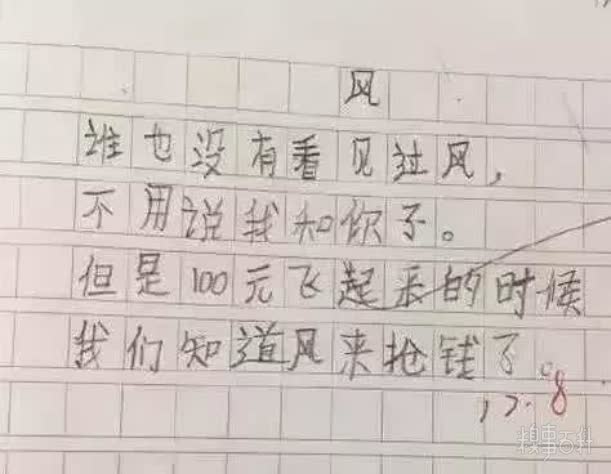 风
谁也没有看见过风，
不用说我和你了。
但是100元飞起来的时候
我们知道风来抢钱了。
12.8
糗事百科